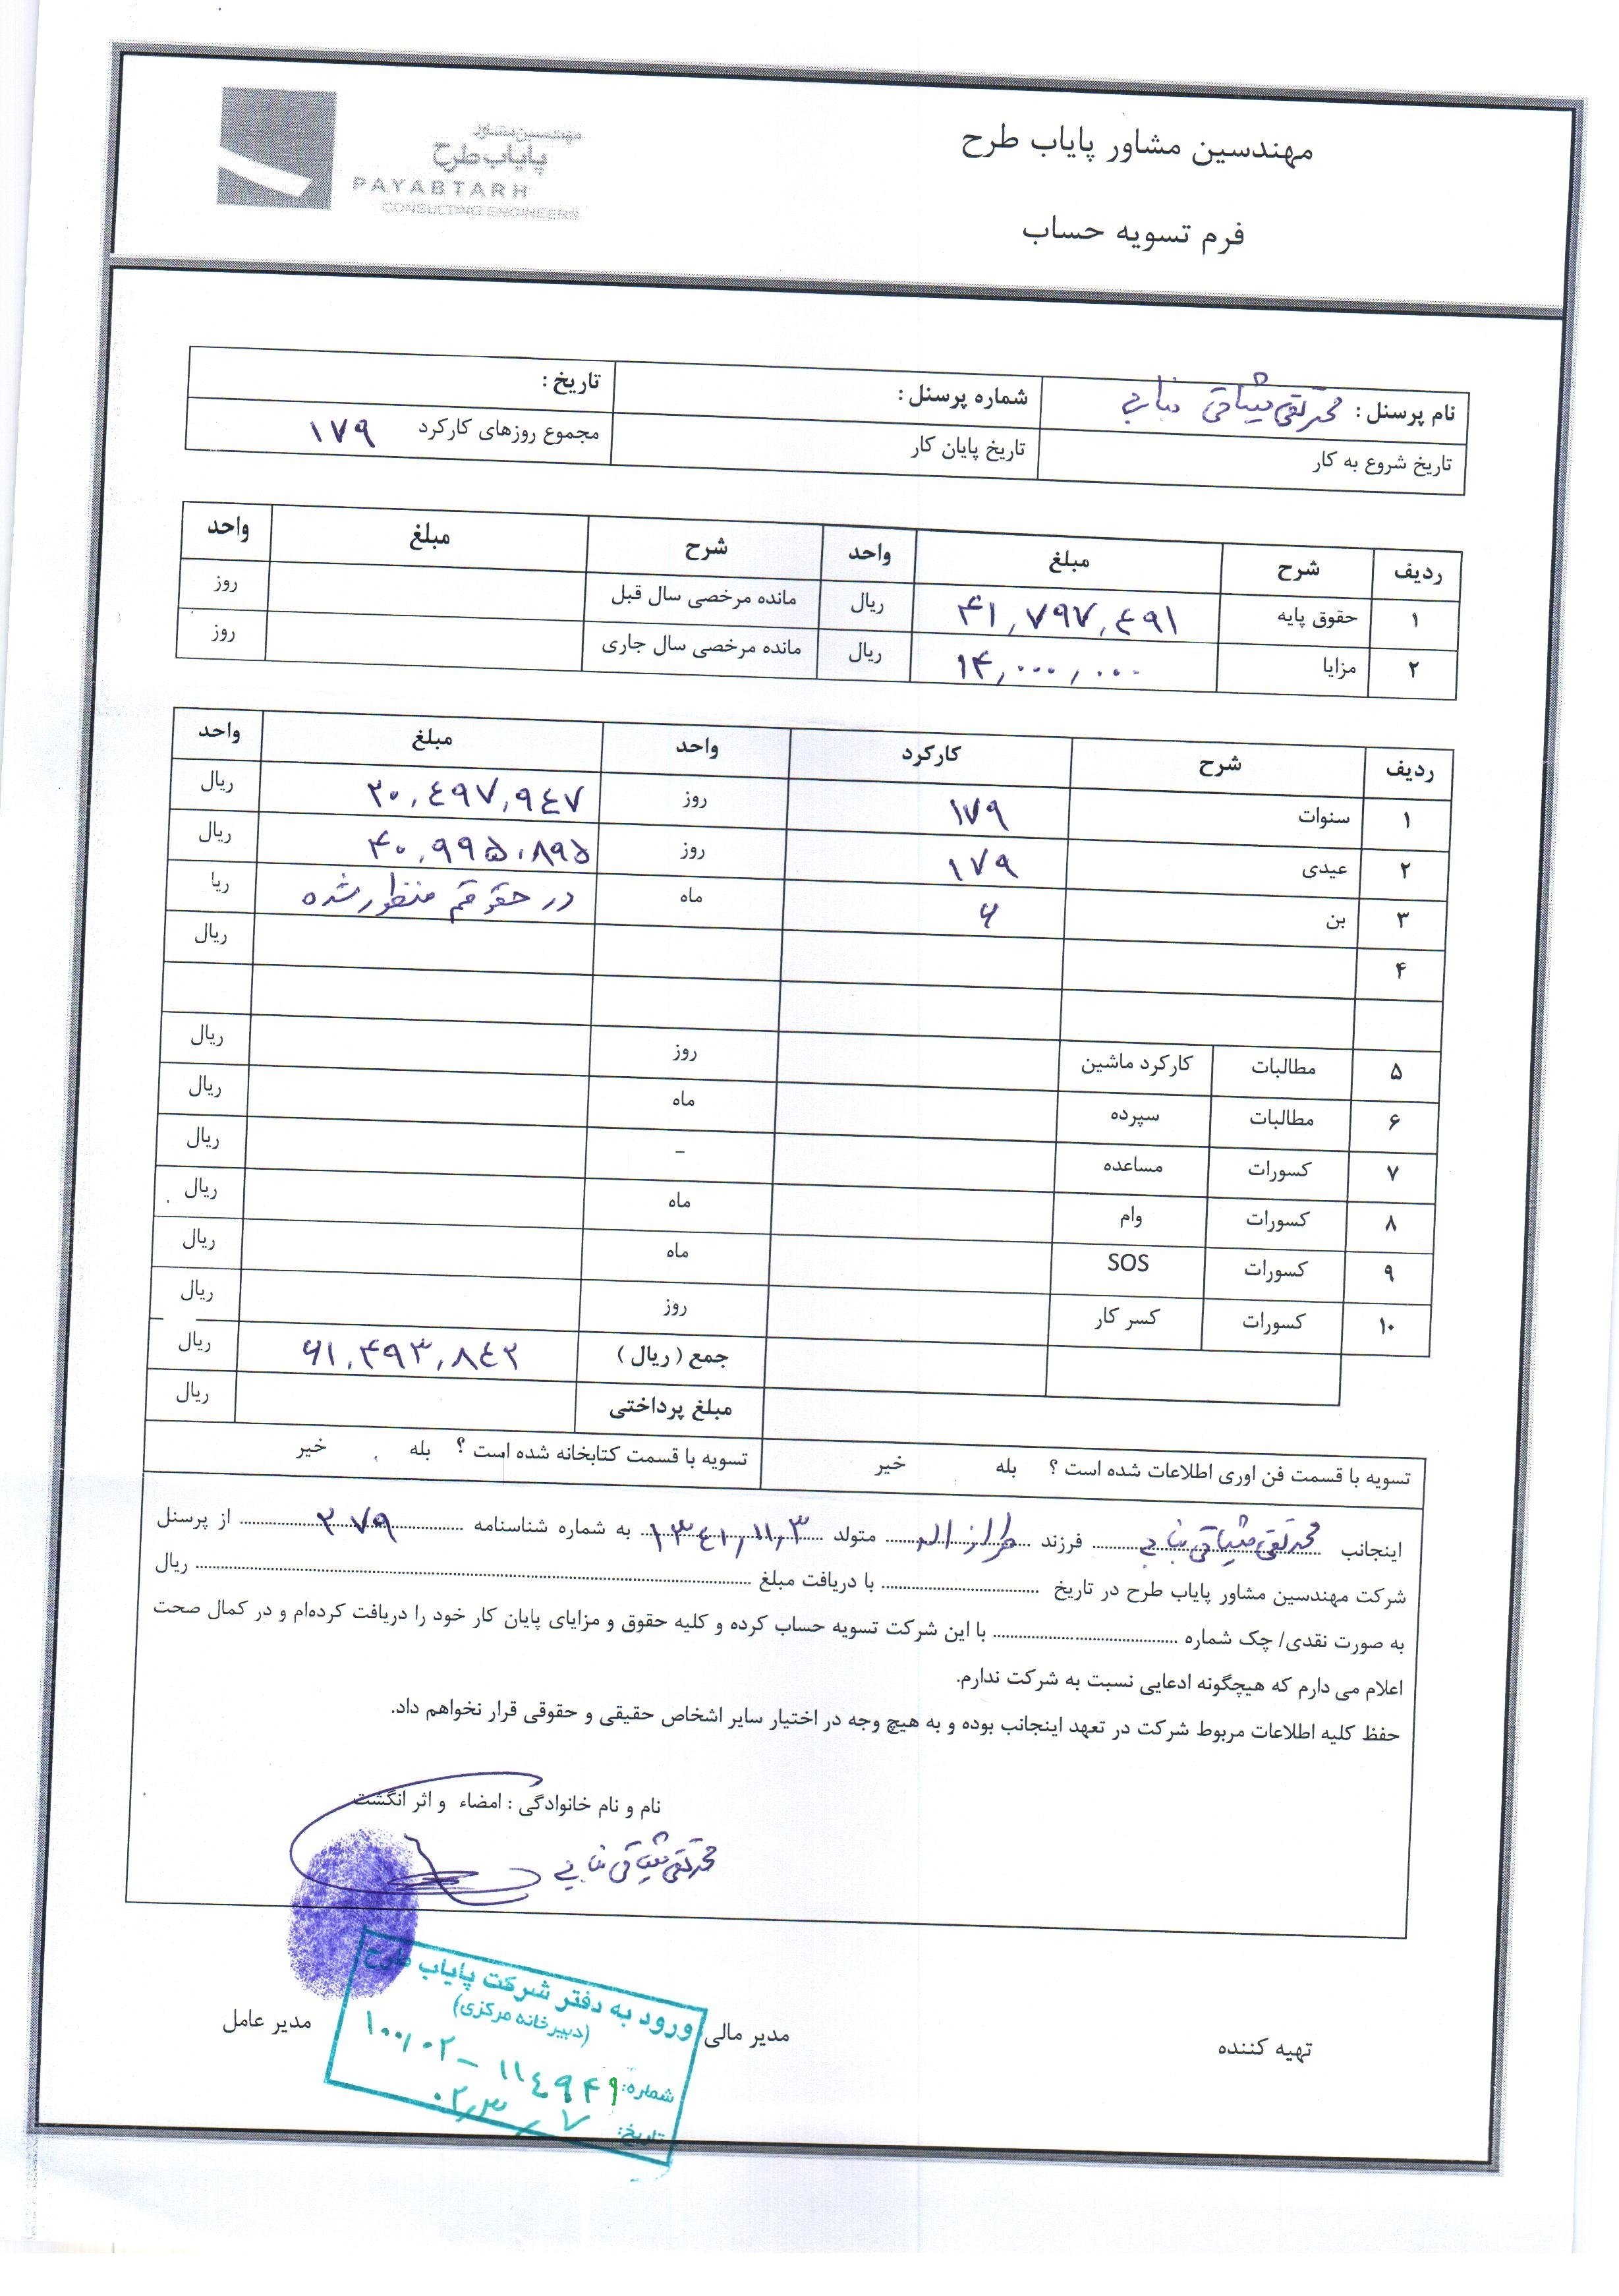 مهندسین مشاور
پایاب طرح
PAYABTARH
CONSULTING ENGINEERS
مهندسین مشاور پایاب طرح
فرم تسویه حساب
نام پرسنل : محمدتقی میثاقی بنابی شماره پرسنل : تاریخ :
تاریخ شروع به کار تاریخ پایان کار مجموع روزهای کارکرد ۱۷۹
ردیف شرح مبلغ واحد شرح مبلغ واحد
۱ حقوق پایه ۴۱,۷۹۷,۶۹۱ ریال مانده مرخصی سال قبل روز
۲ مزایا ۱۴,۰۰۰,۰۰۰ ریال مانده مرخصی سال جاری روز
ردیف شرح کارکرد واحد مبلغ واحد
۱ سنوات ۱۷۹ روز ۲۰,۴۹۷,۹۴۷ ریال
۲ عیدی ۱۷۹ روز ۴۰,۹۹۵,۸۹۵ ریال
۳ بن ۶ ماه در حقوقم منظور شده ریا
۴ ریال
۵ مطالبات کارکرد ماشین روز ریال
۶ مطالبات سپرده ماه ریال
۷ کسورات مساعده - ریال
۸ کسورات وام ماه ریال
۹ کسورات SOS ماه ریال
۱۰ کسورات کسر کار روز ریال
جمع ( ریال ) ۶۱,۴۹۳,۸۴۲ ریال
مبلغ پرداختی ریال
تسویه با قسمت فن اوری اطلاعات شده است ؟ بله خیر تسویه با قسمت کتابخانه شده است ؟ بله خیر
اینجانب محمدتقی میثاقی بنابی فرزند طرازاله متولد ۱۳۴۱,۱۱,۳ به شماره شناسنامه ۲۷۹ از پرسنل
شرکت مهندسین مشاور پایاب طرح در تاریخ ........ با دریافت مبلغ ........ ریال
به صورت نقدی/ چک شماره ........ با این شرکت تسویه حساب کرده و کلیه حقوق و مزایای پایان کار خود را دریافت کرده‌ام و در کمال صحت
اعلام می دارم که هیچگونه ادعایی نسبت به شرکت ندارم.
حفظ کلیه اطلاعات مربوط شرکت در تعهد اینجانب بوده و به هیچ وجه در اختیار سایر اشخاص حقیقی و حقوقی قرار نخواهم داد.
نام و نام خانوادگی : امضاء و اثر انگشت
محمدتقی میثاقی بنابی
تهیه کننده مدیر مالی مدیر عامل
ورود به دفتر شرکت پایاب طرح
(دبیرخانه مرکزی)
شماره: ۱۰۰,۰۲ - ۱۱۴۹۴۹
تاریخ: ۰۲,۳,۷